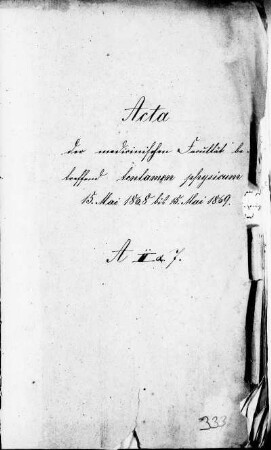 Acta
der medicinischen Facultät be-
treffend tentamen physicum
15. Mai 1868 bis 15. Mai 1869.
A II a 7.
333